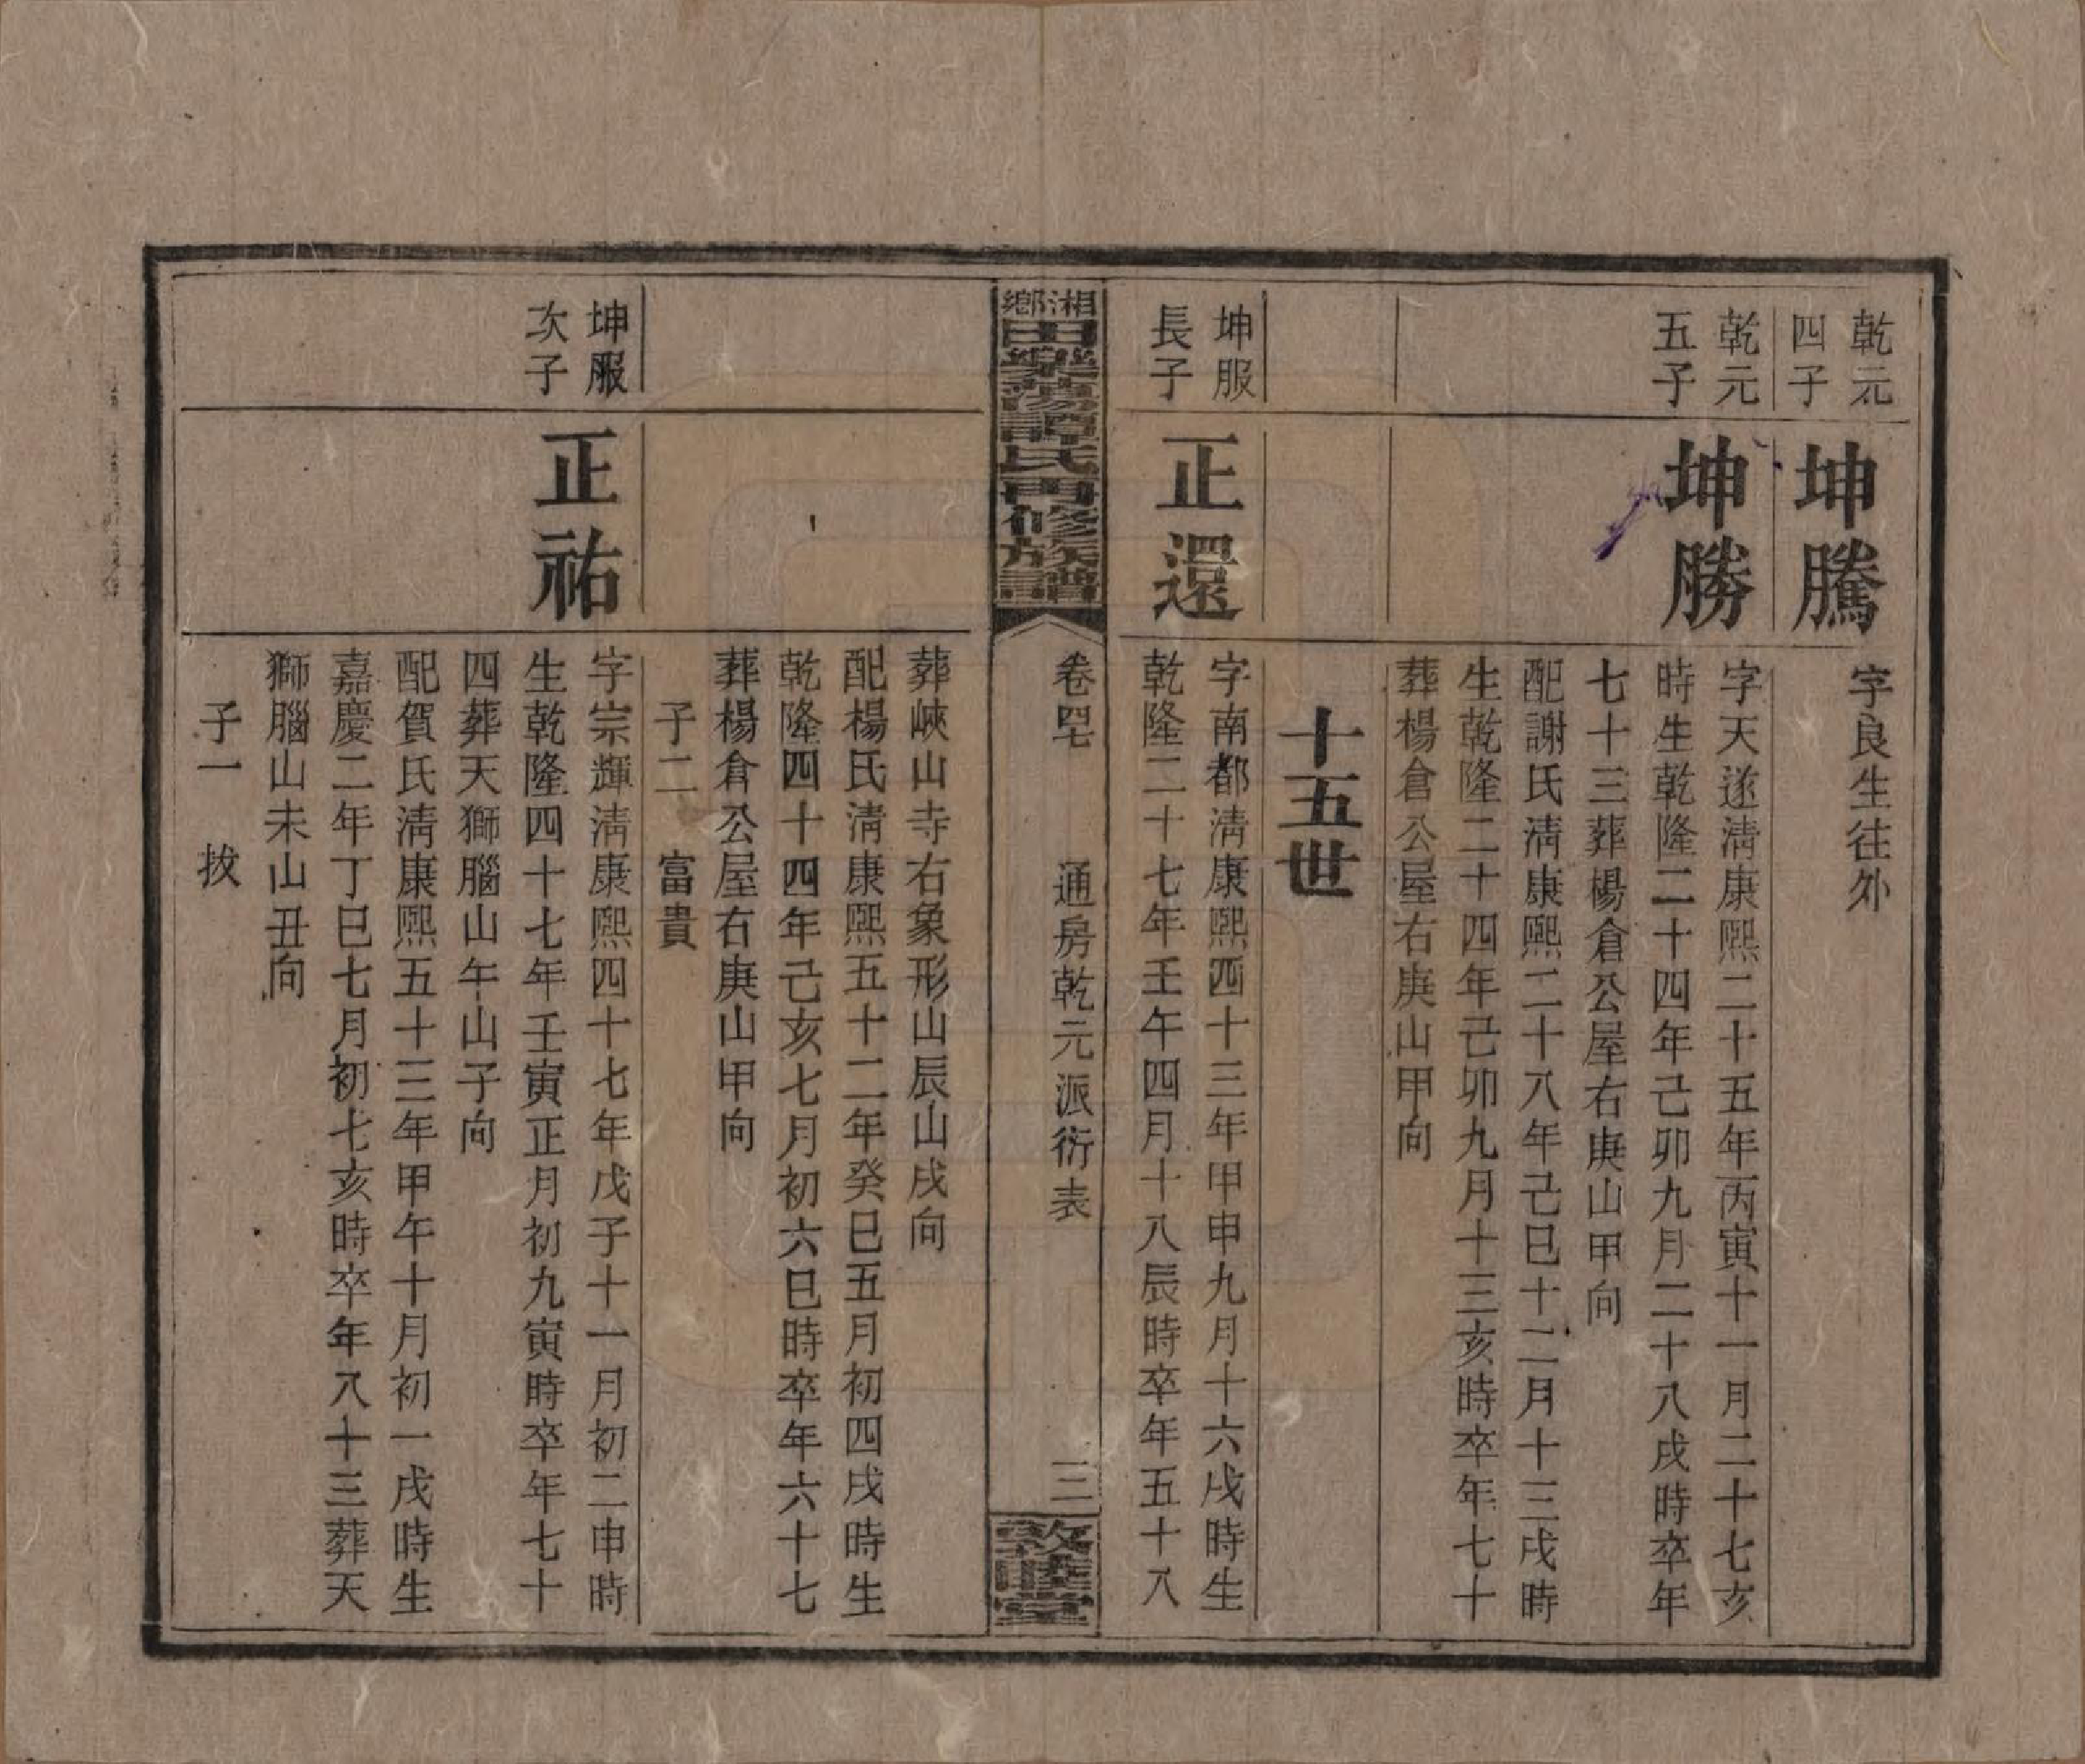 乾元
四子
坤騰
字良生往外
乾元
五子
坤勝
字天遂淸康熙二十五年丙寅十一月二十七亥
時生乾隆二十四年己卯九月二十八戌時卒年
七十三葬楊倉公屋右庚山甲向
配謝氏淸康熙二十八年己巳十二月十三戌時
生乾隆二十四年己卯九月十三亥時卒年七十
葬楊倉公屋右庚山甲向
十五世
坤服
長子
正還
字南都淸康熙四十三年甲申九月十六戌時生
乾隆二十七年壬午四月十八辰時卒年五十八
湘鄉
田樂蕩譚氏四修族譜
卷四七
通房乾元派衍表
三
敦睦堂
葬峽山寺右象形山辰山戌向
配楊氏淸康熙五十二年癸巳五月初四戌時生
乾隆四十四年己亥七月初六巳時卒年六十七
葬楊倉公屋右庚山甲向
子二 富貴
坤服
次子
正祐
字宗輝淸康熙四十七年戊子十一月初二申時
生乾隆四十七年壬寅正月初九寅時卒年七十
四葬天獅腦山午山子向
配賀氏淸康熙五十三年甲午十月初一戌時生
嘉慶二年丁巳七月初七亥時卒年八十三葬天
獅腦山未山丑向
子一 拔